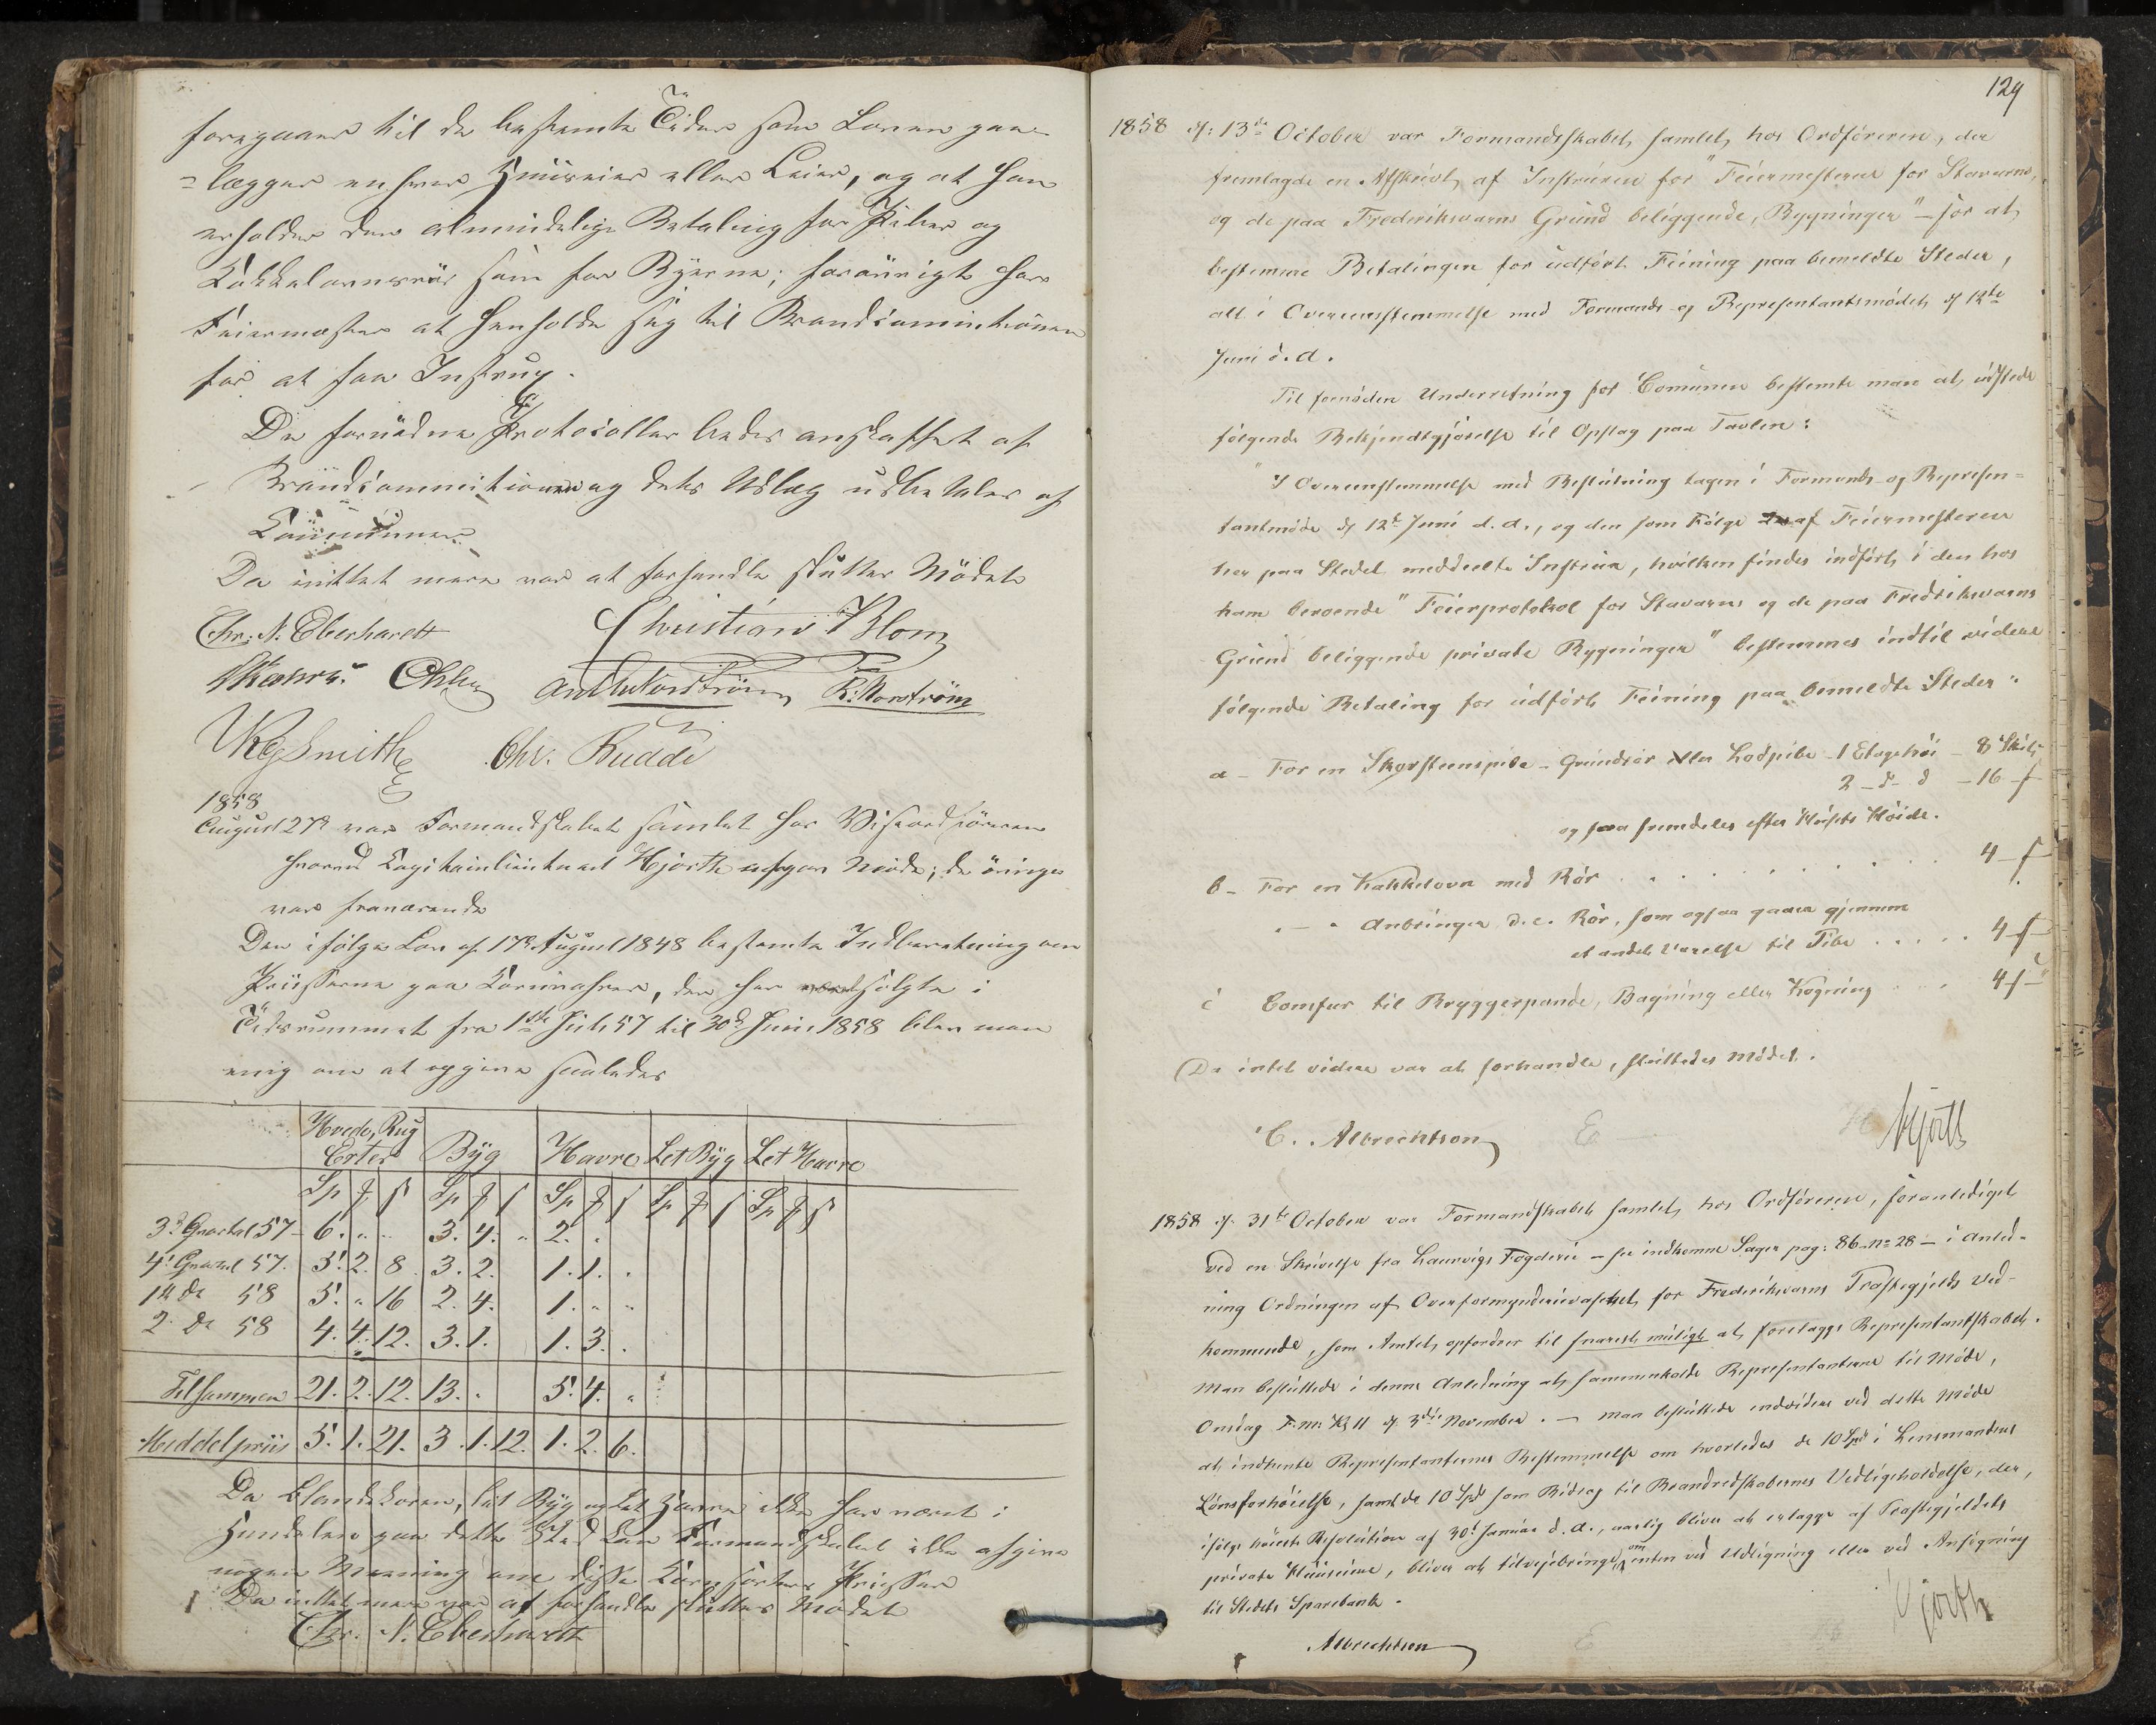 foregaaer til de bestemte Tider som Loven paa-
=lægger enhver Huuseier eller Leier, og at han
erholder den almindelige Betaling for Piber og
Kakkelovnsrör som for Byerne; forövrigt har
Feiermester at henholde sig til Brandcommissionen
for at faa Instrux.
De fornödne Protocoller bedes anskaffet af
Brandcommissionen og dets Udlæg udbetales af
Communen
Da inttet mere var at forhandle sluttes Mödet
Chr: N. Eberhardt Christian Blom
Ohlsen R. Norström
Smith Chr. Budde
1858
August 27de var Formandskabet samlet hos Viseordföreren
hvorved Capitainlieutnant Hjorth afgav Möde; de övrige
var fraværende
Den ifölge Lov af 17de August 1848 bestemte Indberetning om
Priisserne paa Kornvahrer, der har været solgte i
Tidsrummet fra 1ste Juli 57 til 30d Juni 1858 blev man
enig om at opgive saaledes
Hvede, Rug
Erter Byg Havre Let Byg Let Havre
Sp ß Sp ß Sp ß Sp ß Sp ß
3d Qvartal 57 - 6. " " 3. 4. " 2. "
4d Qvartal 57. 5. 2. 8 3. 2. 1. 1. .
1ste Do 58 5. " 16 2. 4. 1. " "
2. Do 58 4. 4. 12. 3. 1. 1. 3. .
Tilsammen 21. 2. 12. 13. . 5. 4. "
Middelpriis 5. 1. 21. 3. 1. 12. 1. 2. 6.
Da Blandekorn, let Byg og let Havre ikke har været i
Handelen paa dette Sted kan Formandskabet ikke afgive
nogen Mening om disse Kornsorters Priisser
Da inttet mere var at forhandle sluttes Mödet
Chr. N. Eberhardt
129
1858 d: 13de October var Formandsskabet samlet hos Ordföreren, der
fremlagde en Afskrivt af Instruxen for "Feiermesteren for Staværns,
og de paa Frederiksværns Grund beliggende, Bygninger" - for at
bestemme Betalingen for udfört Feining paa bemeldte Steder,
alt i Overeensstemmelse med Formands- og Representantsmödet d 12te
Juni d. A.
Til fornöden Underretning for Comunen bestemte man at udstede
fölgende Bekjendtgjörelse til Opslag paa Tavlen:
"I Overeenstemmelse med Beslutning tagen i Formands- og Represen=
tantmöde d 12te Juni d. A., og den som Fölge af Feiermesteren
her paa Stedet meddeelte Instrux, hvilken findes indfört i den hos
ham beroende "Feierprotokol for Staværns og de paa Fredriksværns
Grund beliggende private Bygninger" bestemmes indtil videre
fölgende Betaling for udfört Feining paa bemeldte Steder"
a - For en Skorsteenspibe - Grundrör eller Lodpibe - 1 Etagehöi - 8 Skill
2 - d - d - 16 - ß
og saa fremdeles efter Husets Höide.
b - For en Kakkelovn med Rör . . . . . . . . . 4 - ß
" - " Anbringer d.e. Rör, som ogsaa gaaer gjennem
et andet Værelse til Pibe . . . . . 4 ß
c Comfur til Bryggerpande, Bagning eller Kogning . . . 4 ß
Da intet videre var at forhandle, sluttedes Mödet.
C. Albrechtson E Hjorth
1858 d: 31te October var Formandskabet samlet hos Ordföreren, foranlediget
ved en Skrivelse fra Laurvigs Fogderie - see indkomne Sager pag: 86 No 28 - i Anled-
ning Ordningen af Overformynderievæsenet for Frederiksværns Præstegjelds Ved-
kommende, som Amtet opfordrer til snarest muligt at forelægge Representantskabet.
Man besluttede i denne Anledning at sammenkalde Representanterne til Möde,
Onsdag F.M. Kl 11 d 3die November. - Man besluttede endvidere ved dette Möde
at indhente Representanternes Bestemmelse om hvorledes de 10 Spd i Lensmandens
Lönsforhöielse, samt de 10 Spd som Bidrag til Brandredskabernes Vedligeholdelse, der,
ifölge höieste Resolution af 30te Januar d. A., aarlig bliver at erlægge af Præstegjeldets
private Huuseiere, bliver at tilveiebringe, om enten ved Udligning eller ved Ansögning
til Stedets Sparebank.
Albrechtson E Hjorth